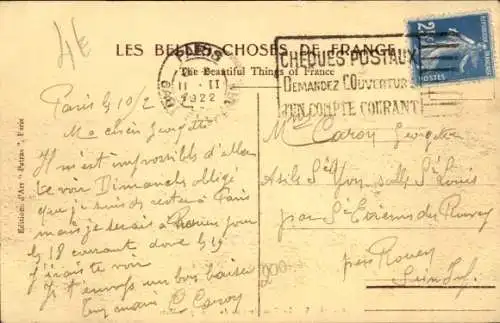 4€
LES BELLES CHOSES DE FRANCE
The Beautiful Things of France
PARIS
II
1922
CHÈQUES POSTAUX
DEMANDEZ L'OUVERTURE
D'UN COMPTE COURANT
25c
POSTES
Paris le 10/2
Ma chère Georgette
Il m'est impossible d'aller
te voir Dimanche obligé
que je suis de rester à Paris
mais je serais à Rouen pour
le 18 courant donc le 19
j'irais te voir
Je t'envoys un bon baiser
Ton mari C Caroy
Mme Caroy Georgette
Asile St Yon salle St Louis
par St Etienne du Rouvray
près Rouen
Seine Inf.
200
Editions d'Art "Patras", Paris